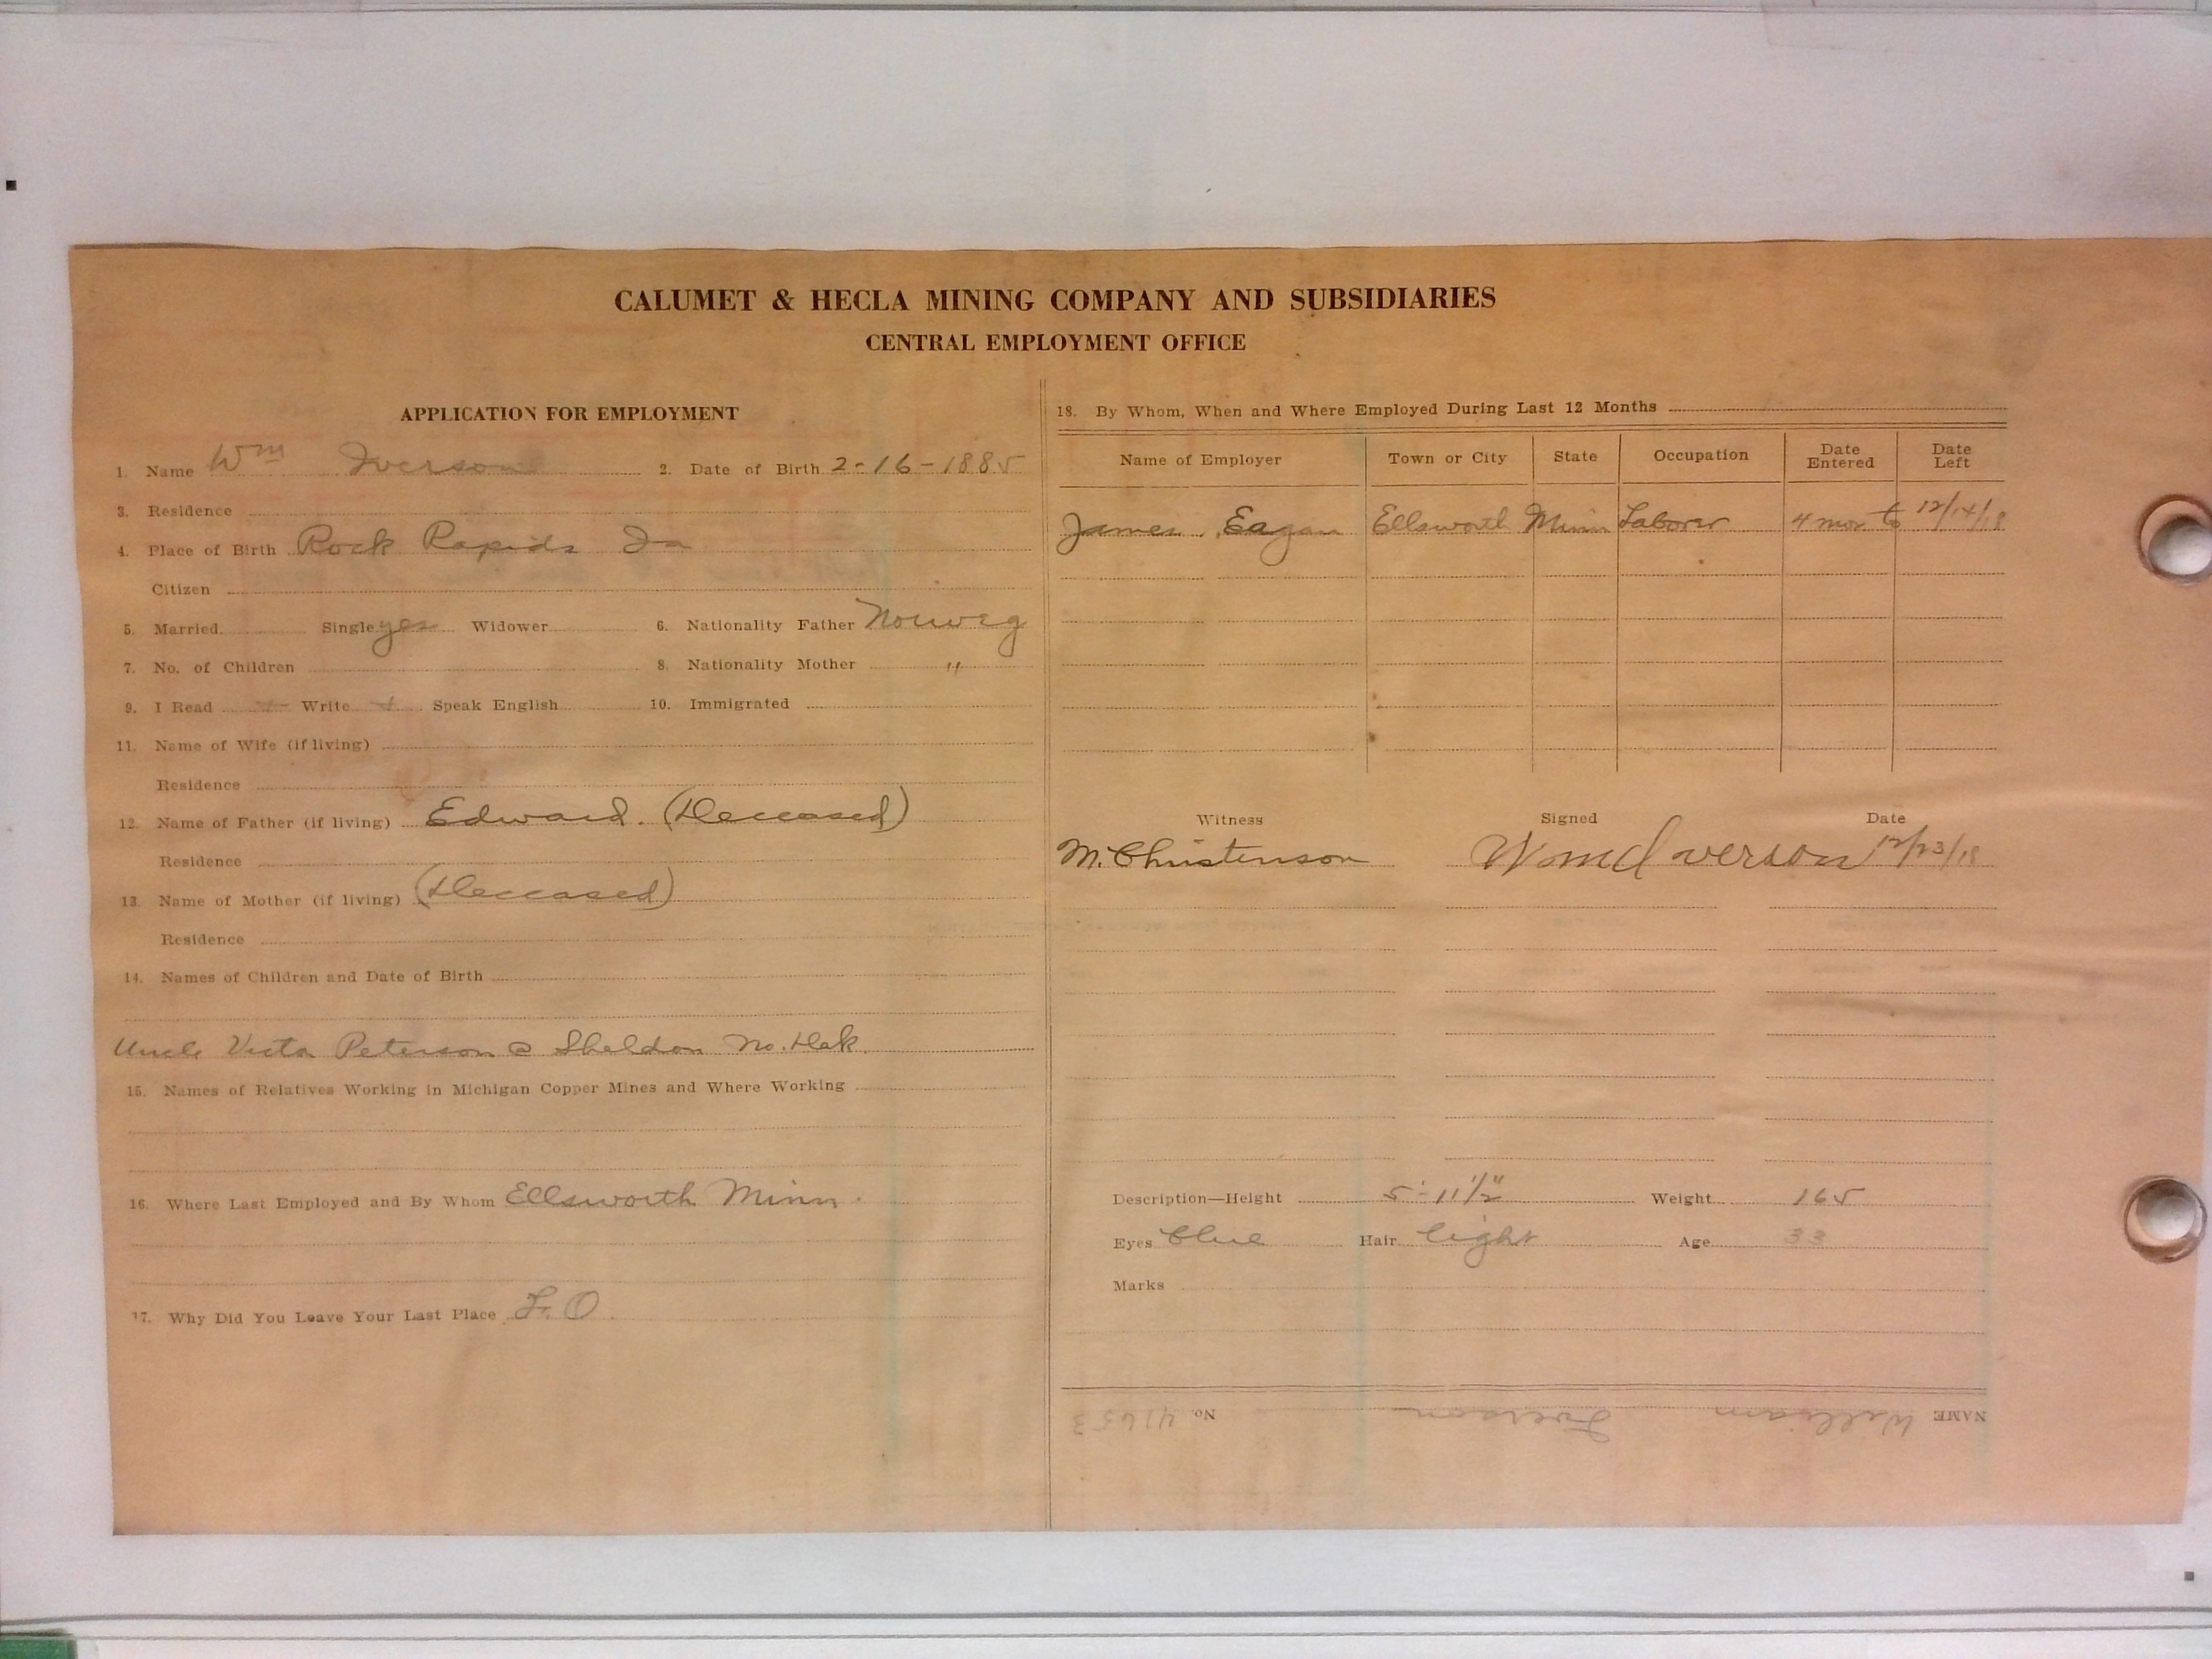 CALUMET & HECLA MINING COMPANY AND SUBSIDIARIES
CENTRAL EMPLOYMENT OFFICE
APPLICATION FOR EMPLOYMENT
1. Name Wm Iverson 2. Date of Birth 2-16-1885
3. Residence
4. Place of Birth Rock Rapids Ia
Citizen
5. Married Single yes Widower 6. Nationality Father Norweg
7. No. of Children 8. Nationality Mother "
9. I Read + Write + Speak English 10. Immigrated
11. Name of Wife (if living)
Residence
12. Name of Father (if living) Edward. (Deceased)
Residence
13. Name of Mother (if living) (Deceased)
Residence
14. Names of Children and Date of Birth
Uncle Victor Peterson @ Sheldon No. Dak.
15. Names of Relatives Working in Michigan Copper Mines and Where Working
16. Where Last Employed and By Whom Ellsworth Minn.
17. Why Did You Leave Your Last Place
18. By Whom, When and Where Employed During Last 12 Months
Name of Employer Town or City State Occupation Date Entered Date Left
James Eagan Ellsworth Minn Laborer 4 mos to 12/14/18
Witness Signed Date
M. Christenson Wm Iverson 12/23/18
Description—Height 5'-11½" Weight 165
Eyes blue Hair light Age 33
Marks
NAME William Iverson No. 41653